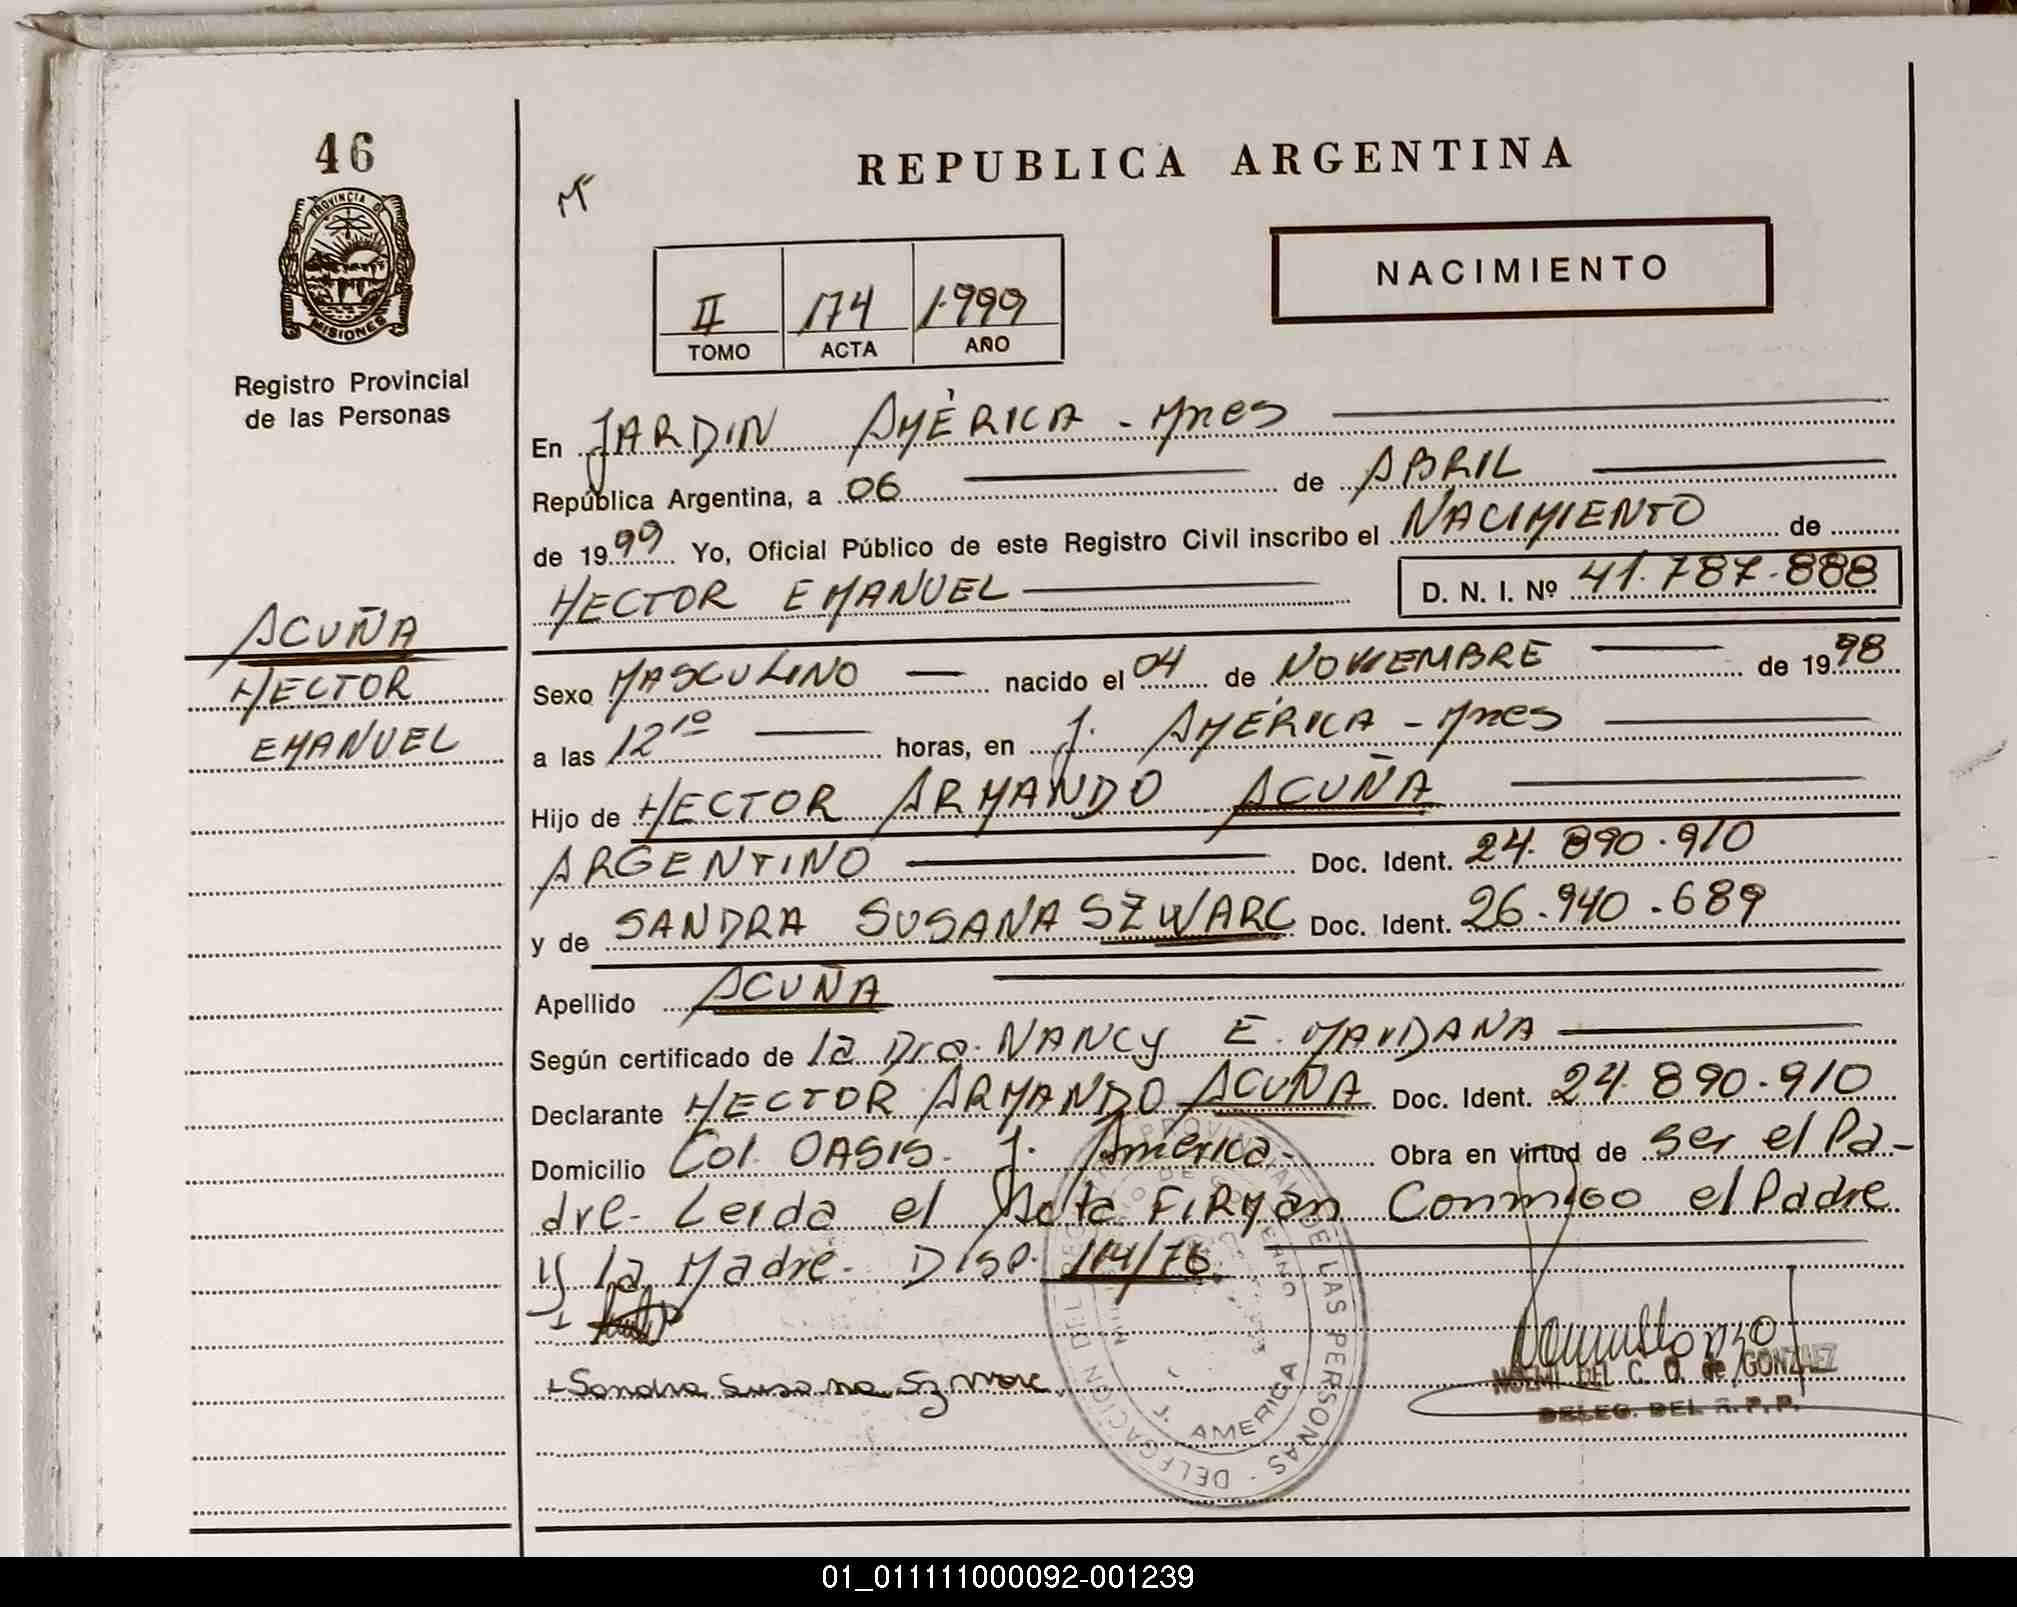 46
PROVINCIA DE
MISIONES
Registro Provincial
de las Personas
ACUÑA
HECTOR
EMANUEL
REPUBLICA ARGENTINA
NACIMIENTO
II 174 1.999
TOMO ACTA AÑO
En JARDIN AMÉRICA - Mnes
República Argentina, a 06 de ABRIL
de 1999 Yo, Oficial Público de este Registro Civil inscribo el NACIMIENTO de
HECTOR EMANUEL D. N. I. Nº 41.787.888
Sexo MASCULINO nacido el 04 de NOVIEMBRE de 1998
a las 12 10 horas, en J. AMÉRICA - Mnes
Hijo de HECTOR ARMANDO ACUÑA
ARGENTINO Doc. Ident. 24.890.910
y de SANDRA SUSANA SZWARC Doc. Ident. 26.940.689
Apellido ACUÑA
Según certificado de la Dra. NANCY E. MAIDANA
Declarante HECTOR ARMANDO ACUÑA Doc. Ident. 24.890.910
Domicilio Col. OASIS - J. América - Obra en virtud de ser el Pa-
dre - Leida el Acta FIRMAN Conmigo el Padre
y la Madre - DISP. 114/76.
+ Sandra Susana Szwarc
NOEMI DEL C. D. de GONZALEZ
DELEG. DEL R. P. P.
DE LAS PERSONAS - DELEGACION
J. AMERICA
01_011111000092-001239